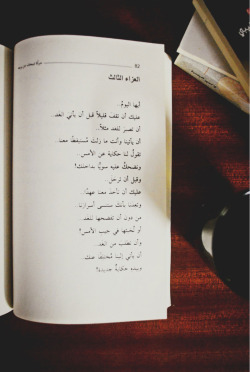 82
العزاء الثالث
أيها اليومُ..
عليك أن تقف قليلاً قبل أن يأتي الغد..
أن تصير للغد مثلاً..
أن يأتينا وأنت ما زلت مُستيقظاً معنا..
تقولُ لنا حكاية عن الأمس..
وتضحكُ عليه سويًا بداخلنا!
وقبل أن ترحل..
عليك أن تأخذ معنا عهدًا..
وتعدنا بأنك ستنسى أسرارنا..
من دون أن تفضحها للغد..
أو تُخبئها في جيب الأمس!
وأن تطلب من الغد..
أن يأتي إلينا مُختلفًا عنك..
ويبدء حكايةً جديدة!